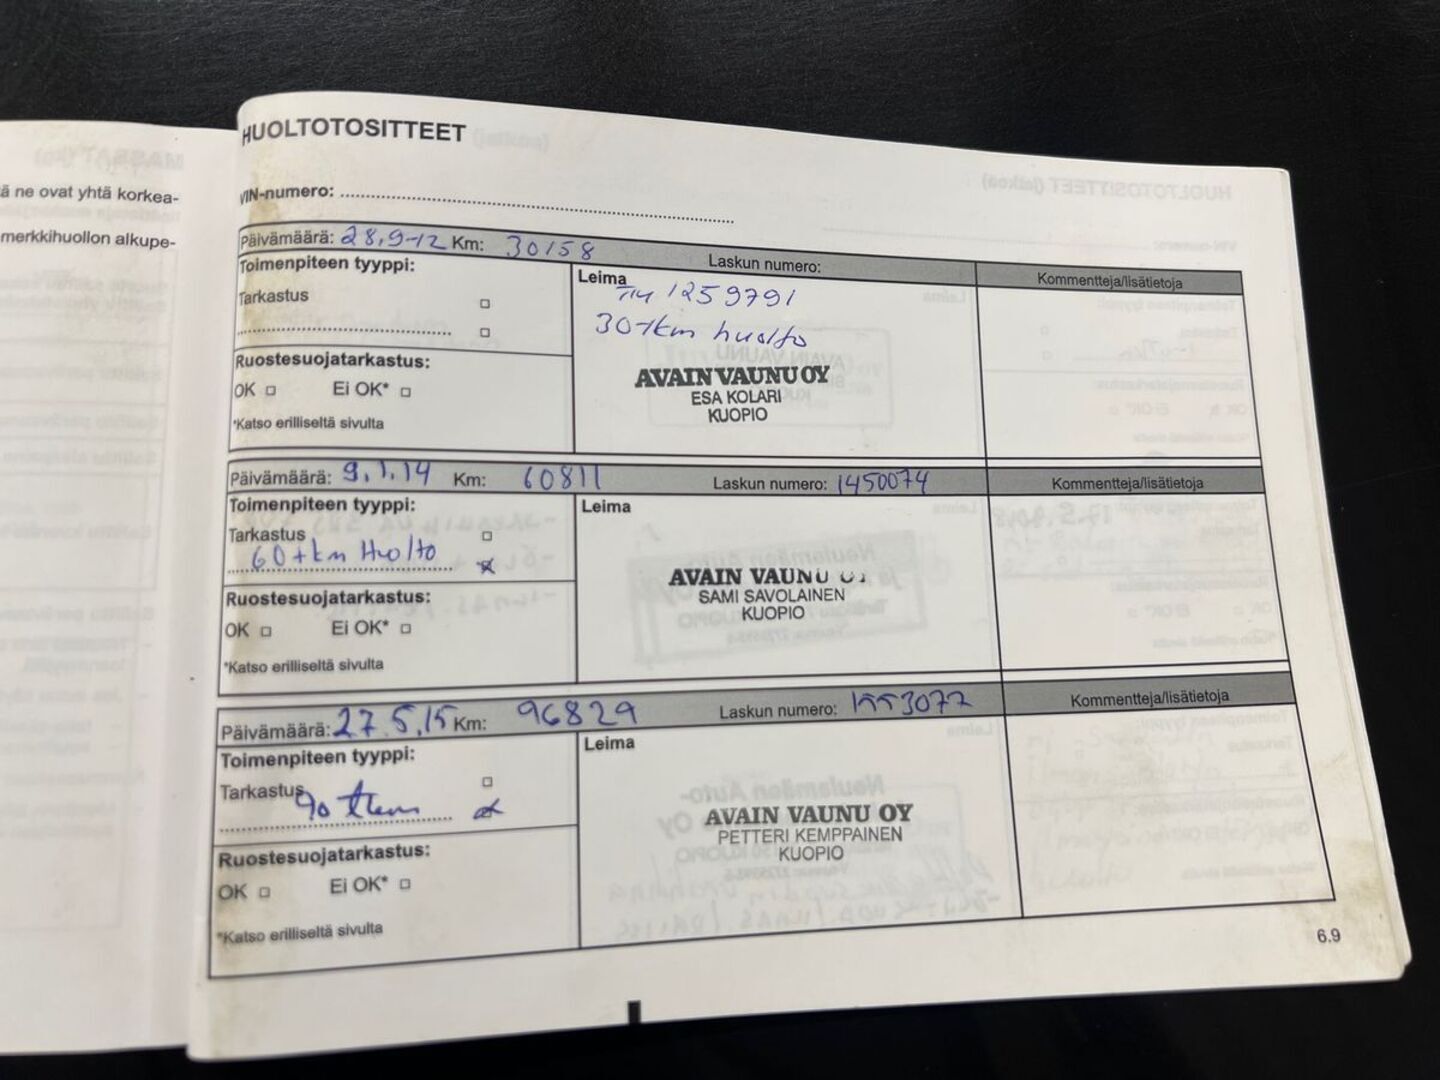 ä ne ovat yhtä korkea-
merkkihuollon alkupe-
HUOLTOTOSITTEET
VIN-numero:
Päivämäärä: 28.9-12 Km: 30158 Laskun numero: Kommentteja/lisätietoja
Toimenpiteen tyyppi:
Leima
Tarkastus
1259791
30tkm huolto
Ruostesuojatarkastus:
OK Ei OK*
*Katso erilliseltä sivulta
AVAIN VAUNU OY
ESA KOLARI
KUOPIO
Päivämäärä: 9.1.14 Km: 60811 Laskun numero: 1450074 Kommentteja/lisätietoja
Toimenpiteen tyyppi:
Leima
Tarkastus
60tkm Huolto
Ruostesuojatarkastus:
OK Ei OK*
*Katso erilliseltä sivulta
AVAIN VAUNU
SAMI SAVOLAINEN
KUOPIO
Päivämäärä: 27.5.15 Km: 96829 Laskun numero: 1553077 Kommentteja/lisätietoja
Toimenpiteen tyyppi:
Leima
Tarkastus
90 tkm
Ruostesuojatarkastus:
OK Ei OK*
*Katso erilliseltä sivulta
AVAIN VAUNU OY
PETTERI KEMPPAINEN
KUOPIO
6.9